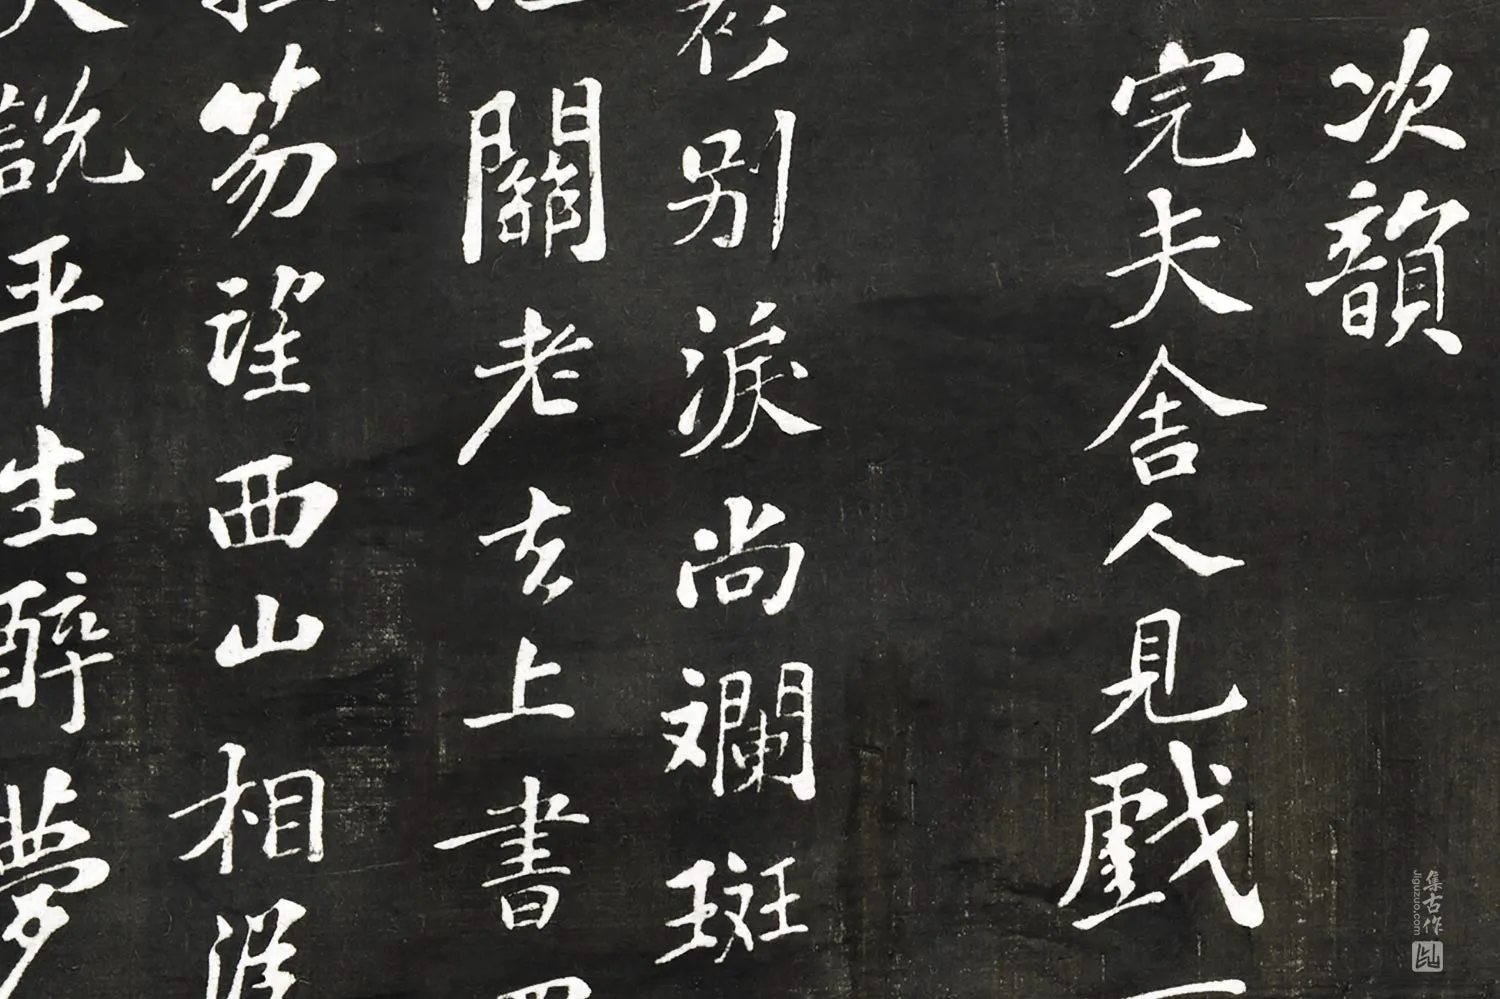 次韻
完夫舍人見戲
衫別淚尚斕斑
關老去上書
笏望西山相涯
說平生醉夢
集古作
Jiguzuo.com